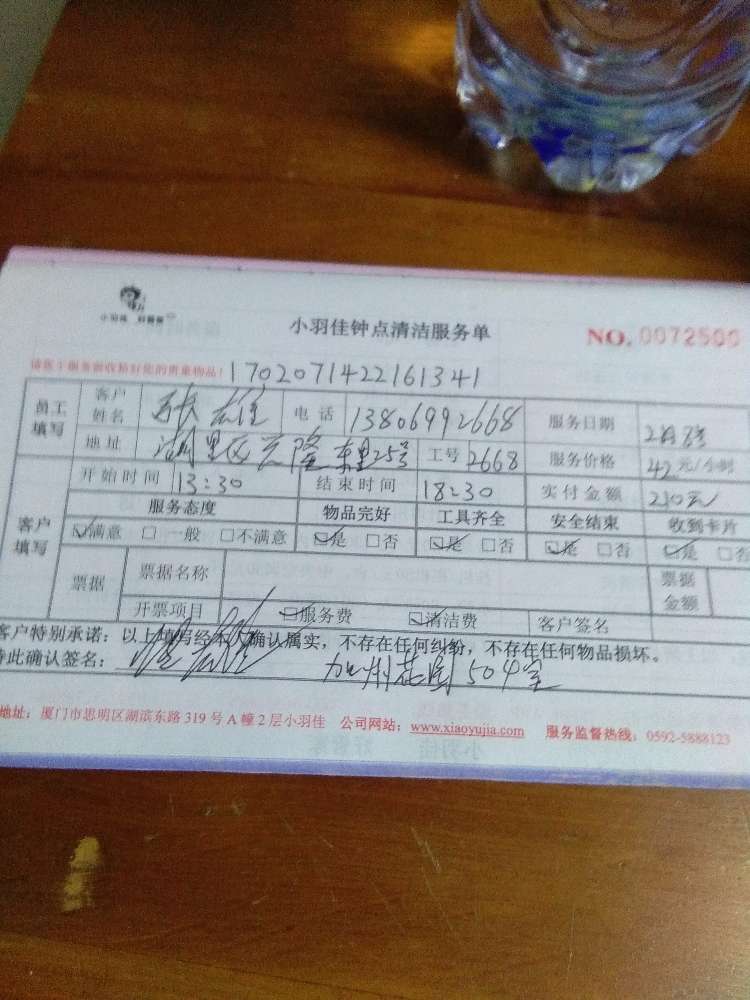 小羽佳 好管家
小羽佳钟点清洁服务单 NO. 0072506
1702071422161341
员工填写 客户姓名 张雄 电话 13806992668 服务日期 2月8号
地址 湖里区兴隆东里25号 工号 2668 服务价格 42 元/小时
开始时间 13:30 结束时间 18:30 实付金额 210元
客户填写 服务态度 物品完好 工具齐全 安全结束 收到卡片
☑满意 □一般 □不满意 ☑是 □否 ☑是 □否 ☑是 □否 ☑是 □否
票据 票据名称 票据金额
开票项目 ☑服务费 ☑清洁费 客户签名
客户特别承诺：以上填写经本人确认属实，不存在任何纠纷，不存在任何物品损坏。
特此确认签名： 加州花园504室
地址：厦门市思明区湖滨东路 319 号 A 幢 2 层小羽佳 公司网站：www.xiaoyujia.com 服务监督热线：0592-5888123